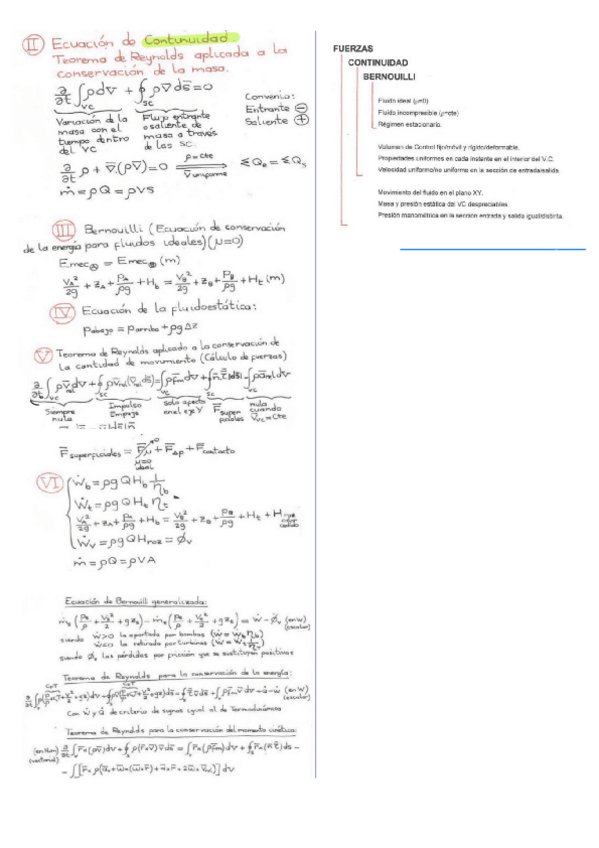 II Ecuación de Continuidad.
Teorema de Reynolds aplicada a la
conservación de la masa.
∂/∂t ∫vc ρdv + ∮sc ρv̄ds̄ = 0
Convenio:
Entrante ⊖
Saliente ⊕
Variación de la
masa con el
tiempo dentro
del VC
Flujo entrante
o saliente de
masa a través
de las SC.
∂/∂t ρ + ∇̄.(ρV̄) = 0 ⟹ ρ = cte V̄ uniforme ΣQe = ΣQs
ṁ = ρQ = ρVS
III Bernouilli (Ecuación de conservación
de la energía para fluidos ideales) (μ=0)
Emec A = Emec B (m)
VA²/2g + zA + PA/ρg + Hb = VB²/2g + zB + PB/ρg + Ht (m)
IV Ecuación de la fluidoestática:
Pabajo = Parriba + ρgΔz
V Teorema de Reynolds aplicado a la conservación de
la cantidad de movimiento (Cálculo de fuerzas)
Siempre
nula
Impulso
Empuje
solo afecta
en el eje Y
F̄ super
ficiales
nula
cuando
V̄vc = Cte
F̄superficiales = F̄μ + F̄Δp + F̄contacto
μ=0
ideal
VI Ẇb = ρgQHb 1/ηb
Ẇt = ρgQHt ηt
VA²/2g + zA + PA/ρg + Hb = VB²/2g + zB + PB/ρg + Ht + Hroz
Ẇv = ρgQHroz = ϕ̇v
ṁ = ρQ = ρVA
Ecuación de Bernouilli generalizada:
ṁs (Ps/ρ + Vs²/2 + gzs) − ṁe (Pe/ρ + Ve²/2 + gze) = Ẇ − ϕ̇v (en W) (escalar)
siendo Ẇ>0 la aportada por bombas (Ẇ = Ẇb ηb)
Ẇ<0 la retirada por turbinas
siendo ϕ̇v las pérdidas por fricción que se sustituyen positivas
Teorema de Reynolds para la conservación de la energía:
Con Ẇ y Q̇ de criterio de signos igual al de Termodinámica
Teorema de Reynolds para la conservación del momento cinético:
FUERZAS
CONTINUIDAD
BERNOUILLI
Fluido ideal (μ=0)
Fluido incompresible (ρ=cte)
Régimen estacionario.
Volumen de Control fijo/móvil y rígido/deformable.
Propiedades uniformes en cada instante en el interior del V.C.
Velocidad uniforme/no uniforme en la sección de entrada/salida.
Movimiento del fluido en el plano XY.
Masa y presión estática del VC despreciables.
Presión manométrica en la sección entrada y salida igual/distinta.